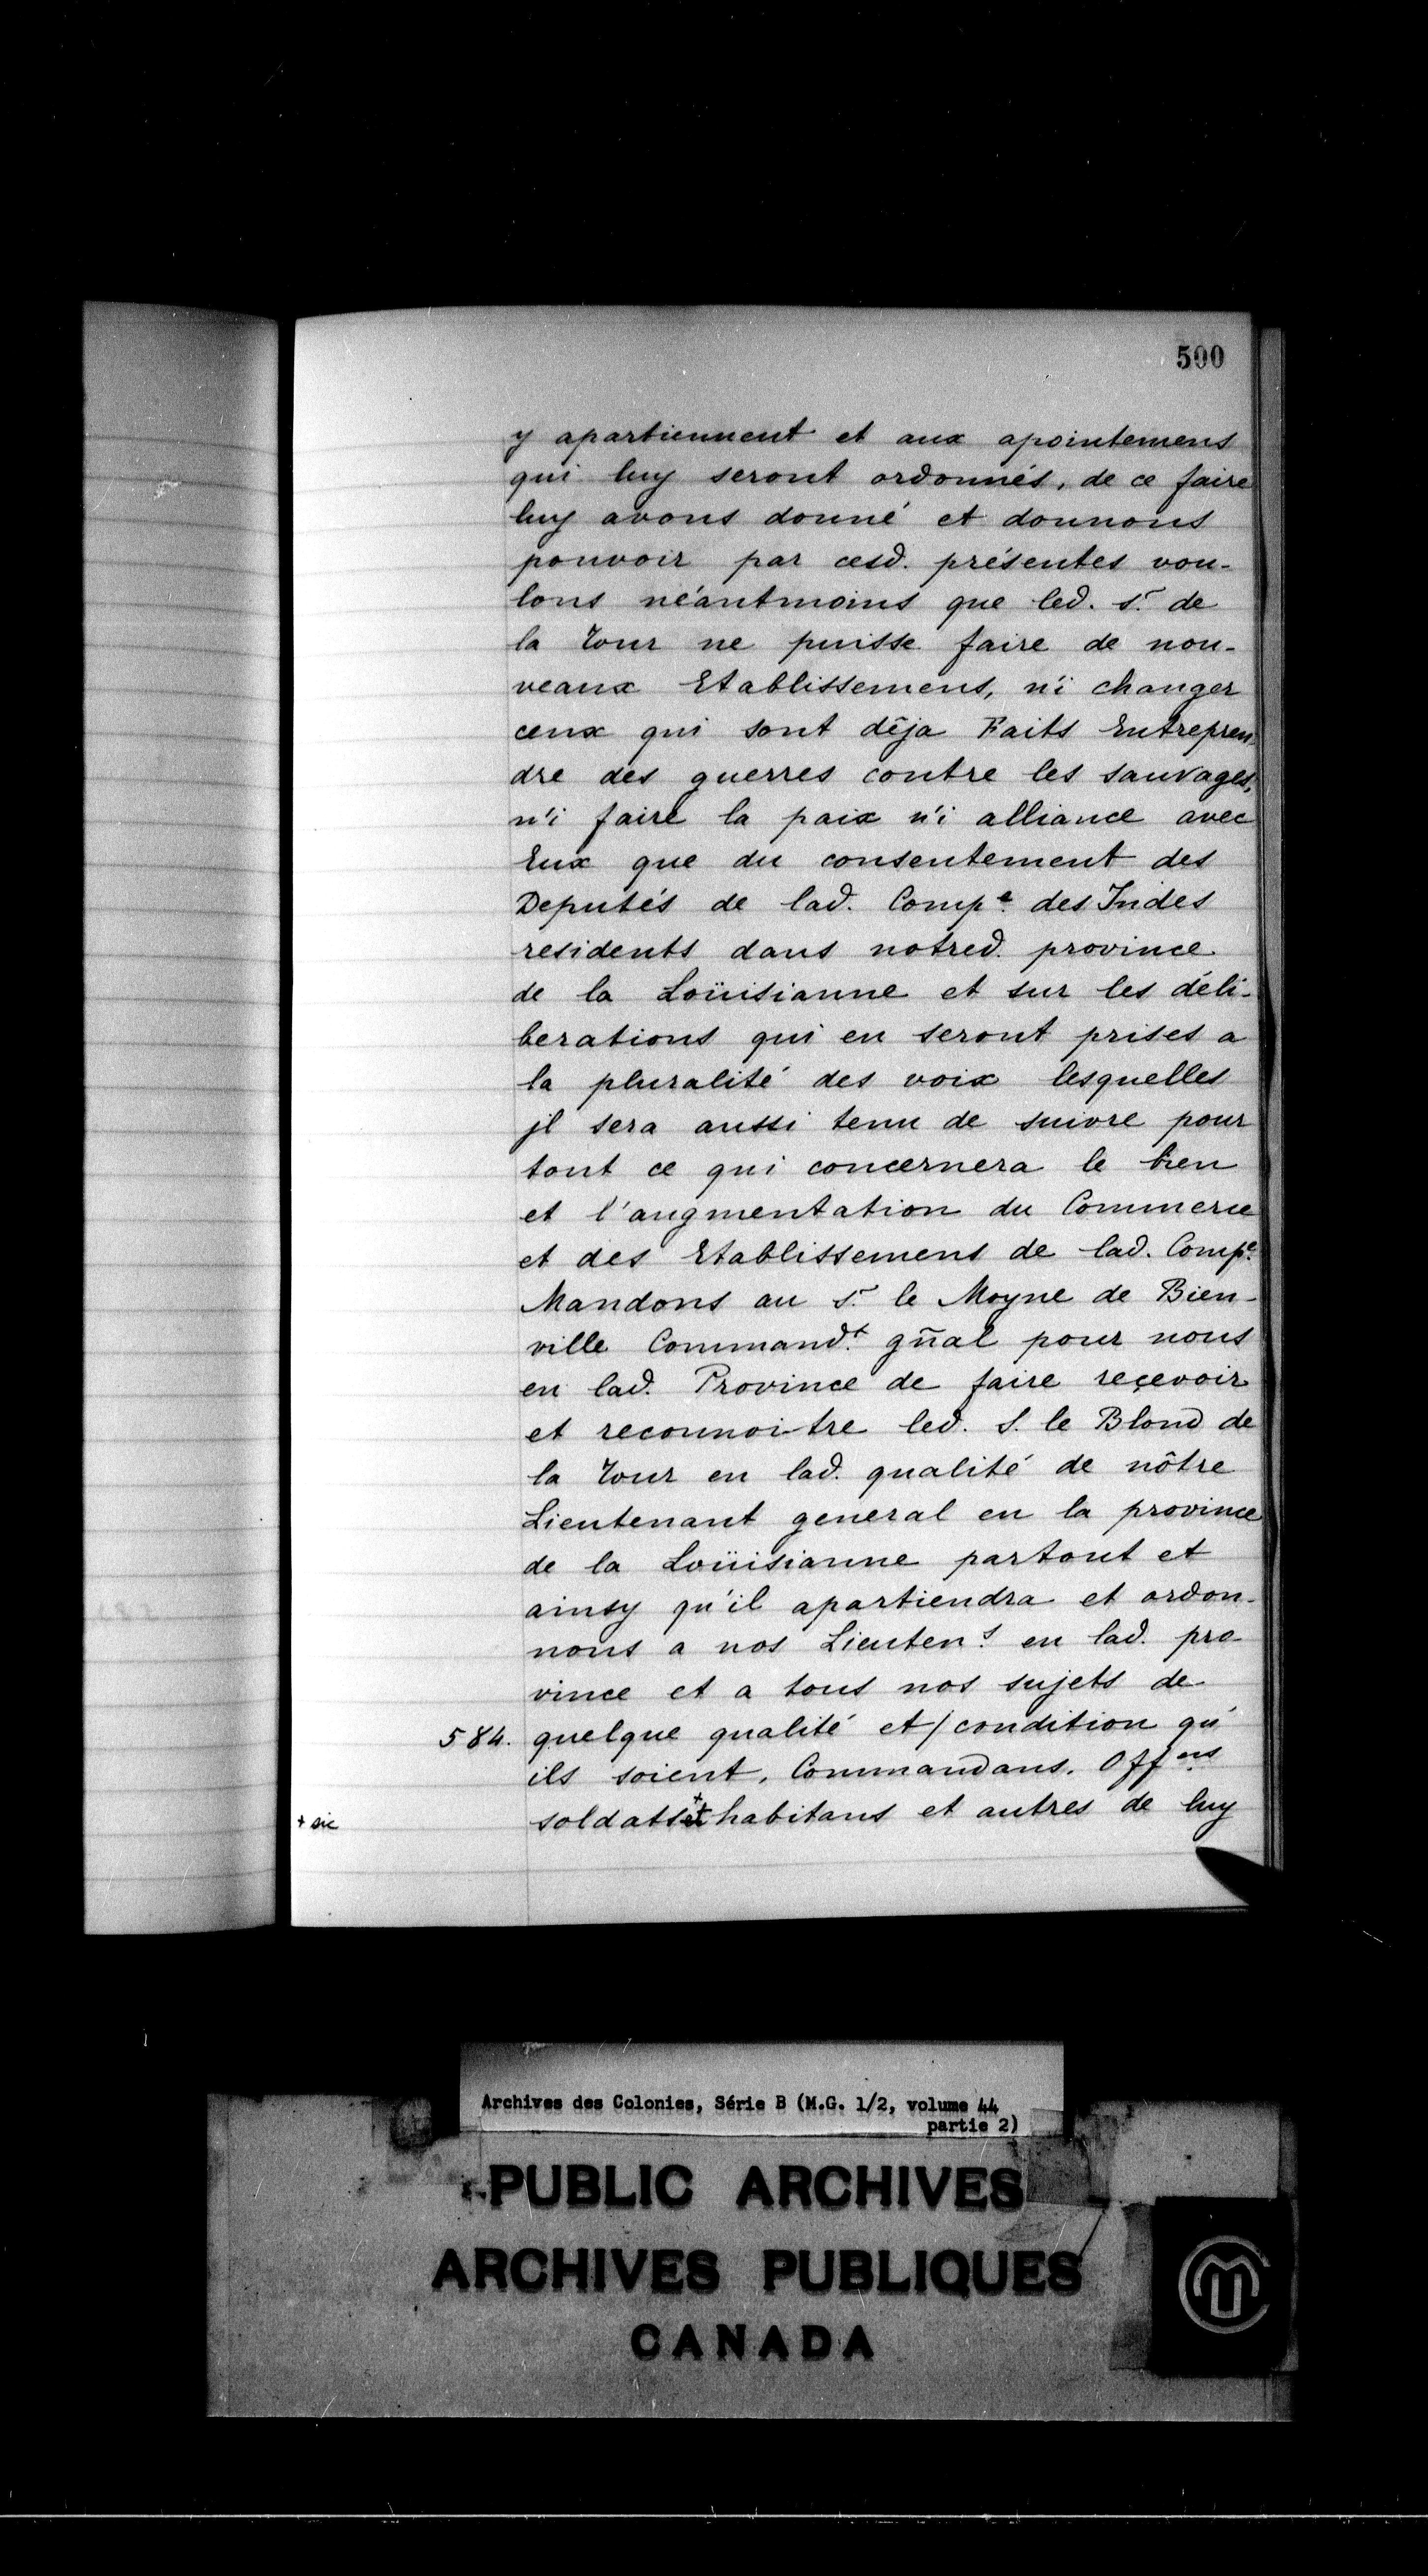 500
y apartiennent et aux apointemens
qui luy seront ordonnés, de ce faire
luy avons donné et donnons
pouvoir par cesd. présentes vou-
lons néantmoins que led. sr. de
la Tour ne puisse faire de nou-
veaux Etablissemens, n'i changer
ceux qui sont dêja Faits Entrepren-
dre des guerres contre les sauvages,
n'i faire la paix n'i alliance avec
Eux que du consentement des
Deputés de lad. Compe. des Indes
residents dans notred. province
de la Loüisianne et sur les déli-
berations qui en seront prises a
la pluralité des voix lesquelles
jl sera aussi tenu de suivre pour
tout ce qui concernera le bien
et l'augmentation du Commerce
et des Etablissemens de lad. Compe.
Mandons au sr. le Moyne de Bien-
ville Commandt. gñal pour nous
en lad. Province de faire reçevoir
et reconnoitre led. S. le Blond de
la Tour en lad. qualité de nôtre
Lieutenant general en la province
de la Loüisianne partout et
ainsy qu'il apartiendra et ordon-
nons a nos Lieutens. en lad. pro-
vince et a tous nos sujets de
584. quelque qualité et/condition qu'
ils soient, Commandans. Offers.
+ sic soldats et+ habitans et autres de luy
Archives des Colonies, Série B (M.G. 1/2, volume 44
partie 2)
PUBLIC ARCHIVES
ARCHIVES PUBLIQUES
CANADA